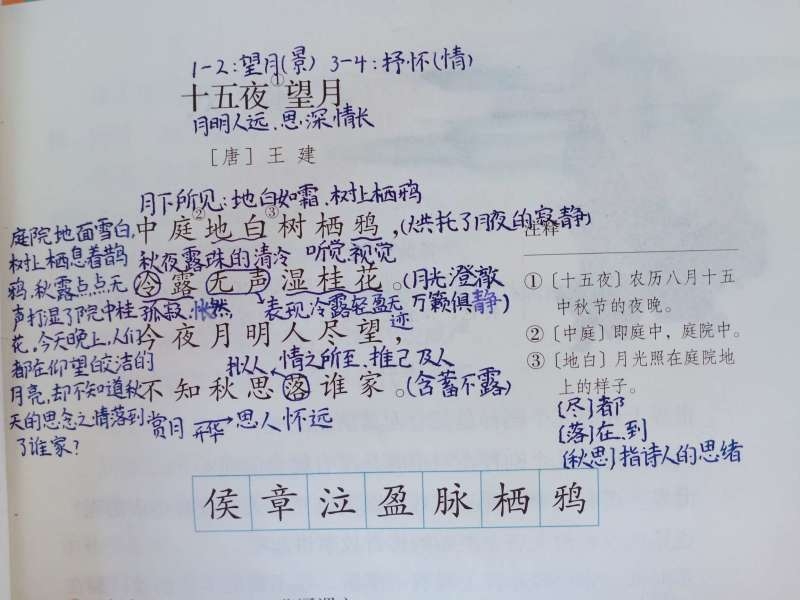 1-2:望月(景) 3-4:抒怀(情)
十五夜①望月
月明人远、思深情长
[唐] 王 建
月下所见:地白如霜、树上栖鸦
中庭②地白③树栖鸦,(烘托了月夜的寂静)
秋夜露珠的清冷 听觉、视觉
冷露无声湿桂花。(月光澄澈
孤寂、怅然 表现冷露轻盈无迹 万籁俱静)
今夜月明人尽望,
拟人、情之所至、推己及人
不知秋思落谁家。(含蓄不露)
赏月 升华→思人怀远
庭院地面雪白,
树上栖息着鹊
鸦,秋露点点无
声打湿了院中桂
花,今天晚上,人们
都在仰望皎洁的
月亮,却不知道秋
天的思念之情落到
了谁家?
注释
①〔十五夜〕农历八月十五
中秋节的夜晚。
②〔中庭〕即庭中,庭院中。
③〔地白〕月光照在庭院地
上的样子。
[尽]都
[落]在、到
[秋思]指诗人的思绪
侯章泣盈脉栖鸦